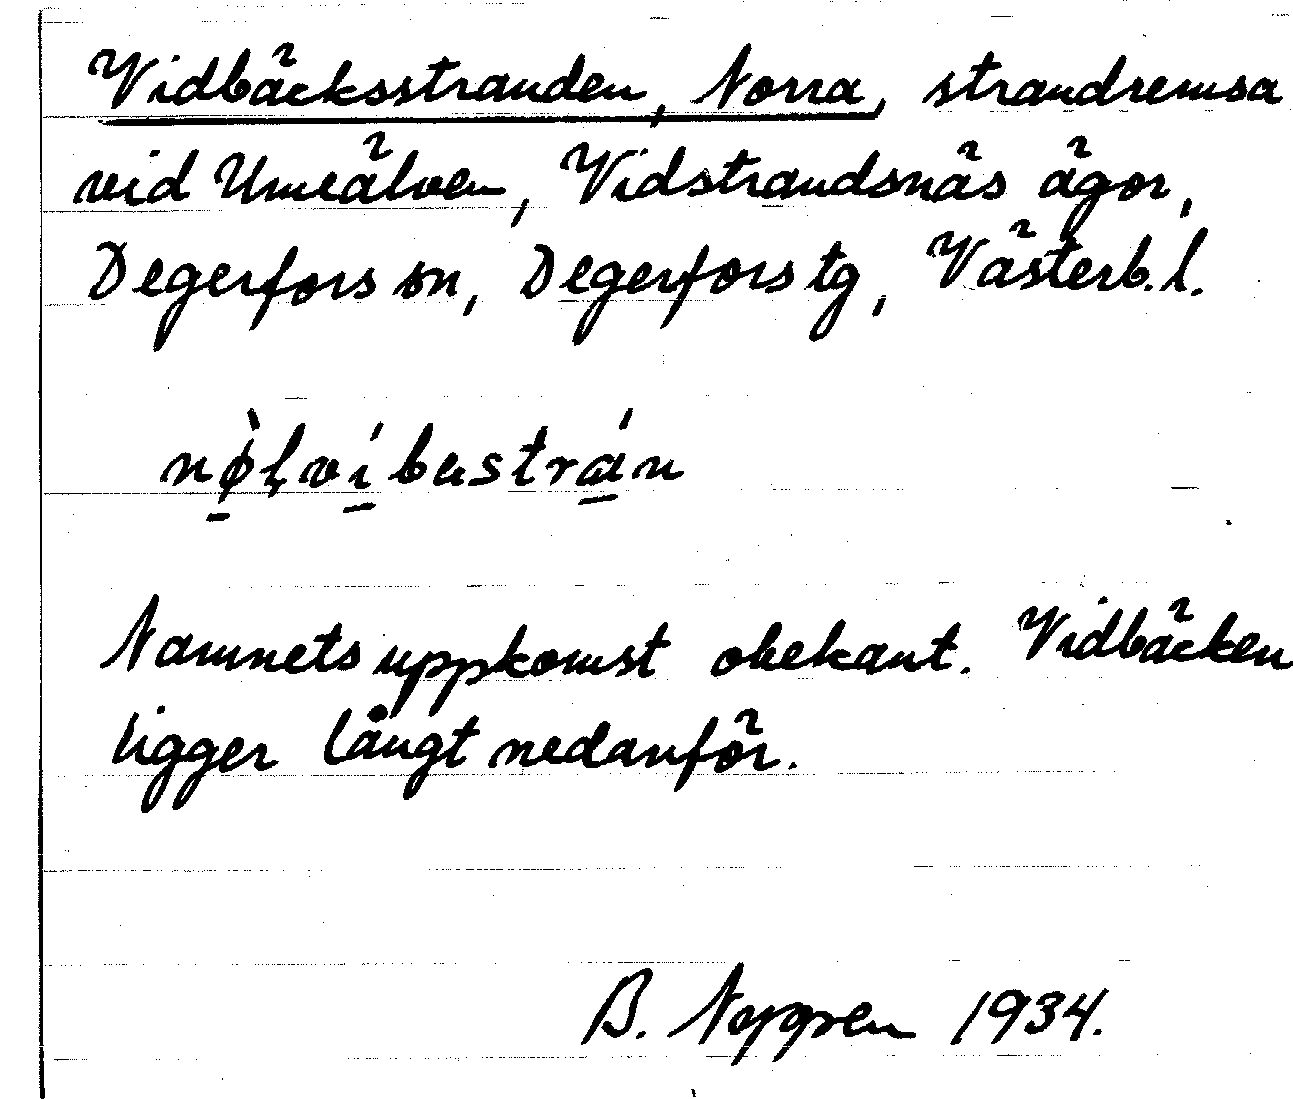 Vidbäcksstranden, Norra, strandremsa
vid Umeälven, Vidstrandsnäs ägor,
Degerfors sn, Degerfors tg, Västerb. l.
nø̀ḷvíbastrán
Namnets uppkomst obekant. Vidbäcken
ligger långt nedanför.
B. 1934.